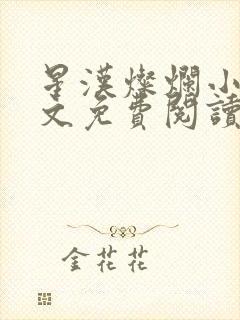 星漢燦爛小
文免費閱讀
金花花